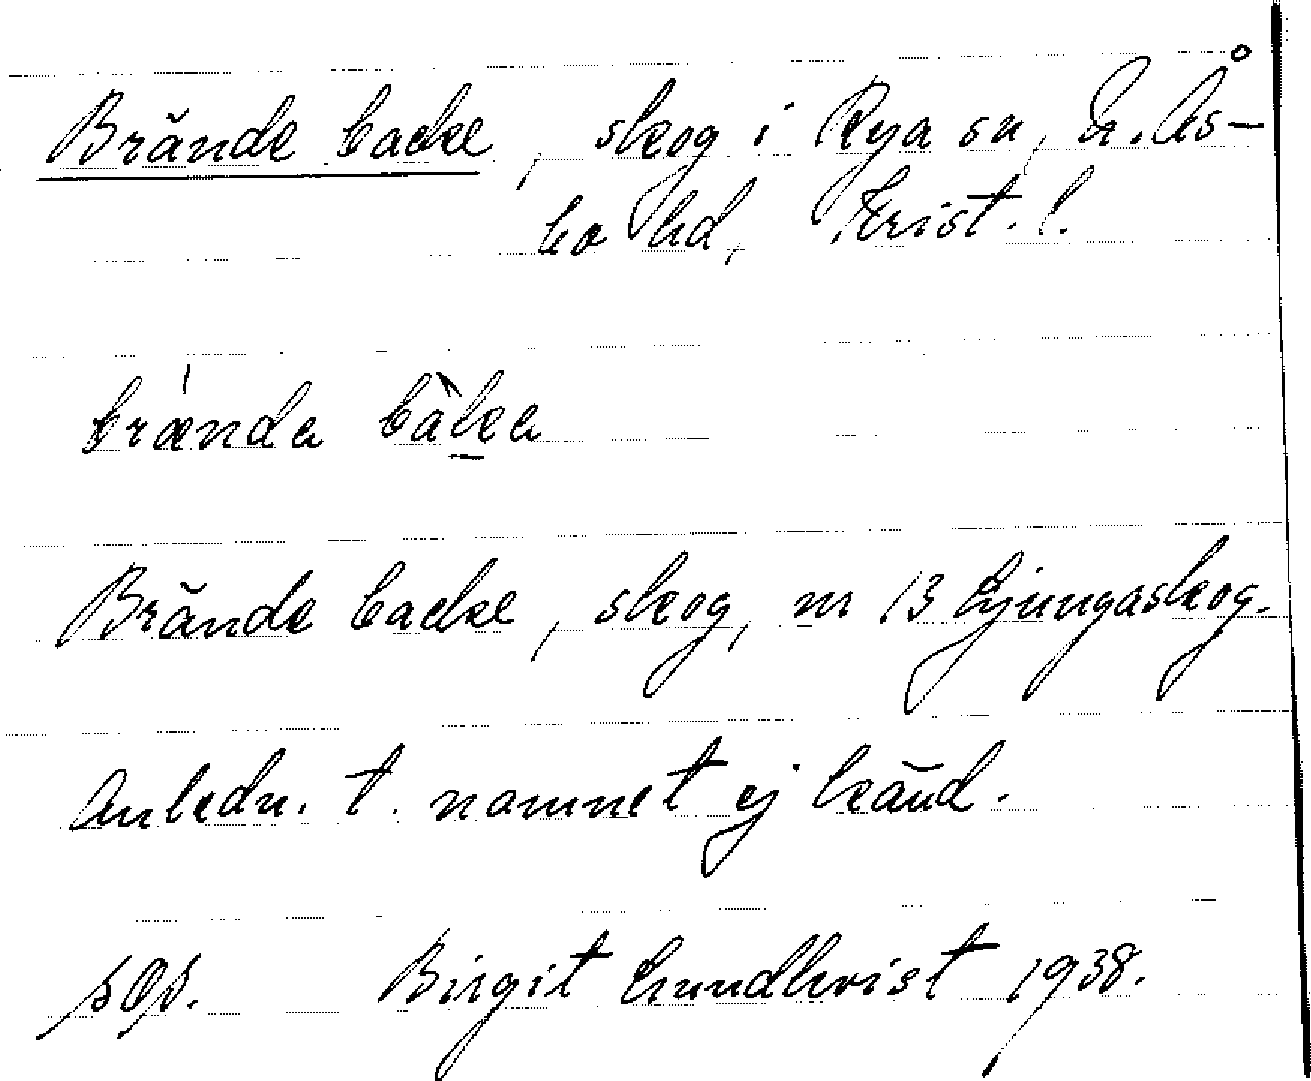 Brände backe, skog i Rya sn, N. Ås-
bo hd, Krist. l.
brænda bàka
Brände backe, skog, nr 13 Ljungaskog.
Anledn. t. namnet ej känd.
Birgit Lundkvist 1938.